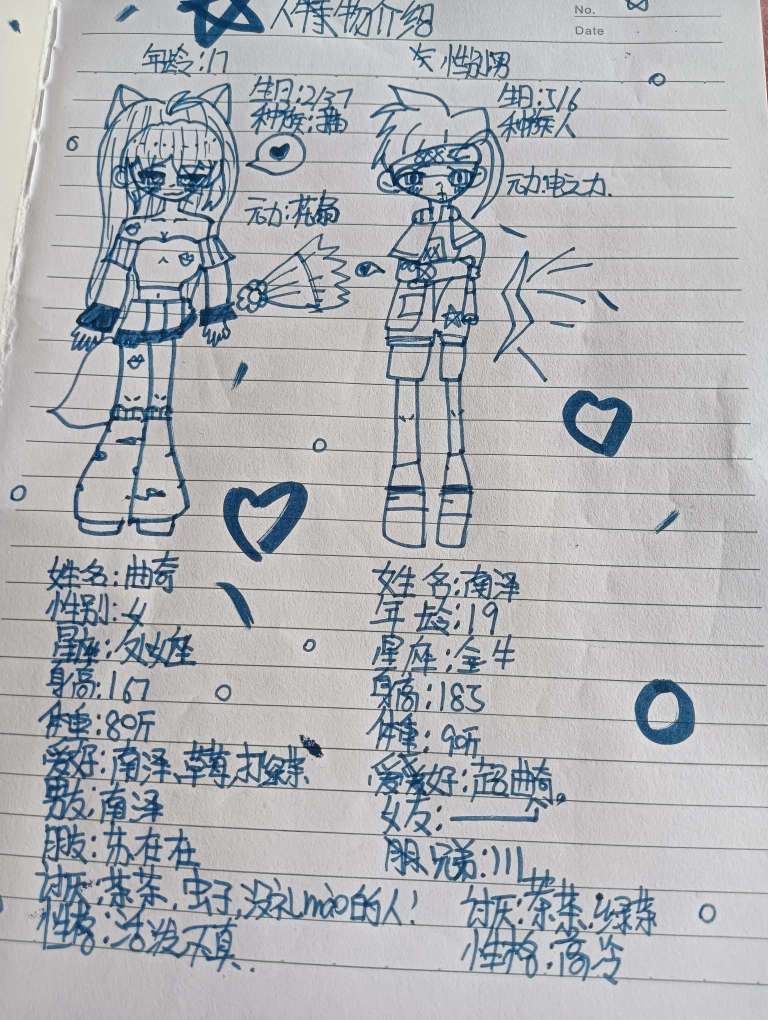 人物介绍
No.
Date
年龄:17
性别男
生日:2/37
种族:
生日:5/6
种族人
元力:花扇
元力:电之力.
姓名:曲奇
性别:女
星座:处女座
身高:167
体重:80斤
爱好:南泽、草莓,打绿茶
男友:南泽
朋友:苏在在
讨厌:茶茶,虫子,没礼mào的人!
性格:活发不真.
姓名:南泽
年龄:19
星座:金牛
身高:183
体重:90斤
爱好:超曲奇。
女友:
朋兄弟:111
讨厌:茶茶,绿茶
性格:高冷